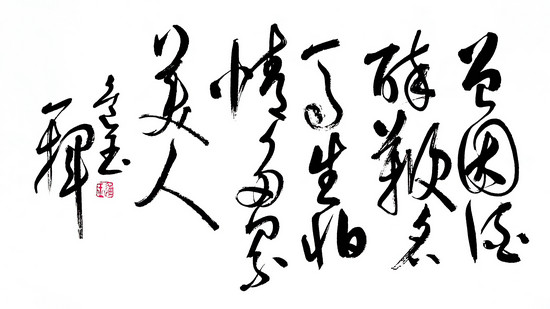 曾因酒
醉鞭名
马生怕
情多累
美人
玉